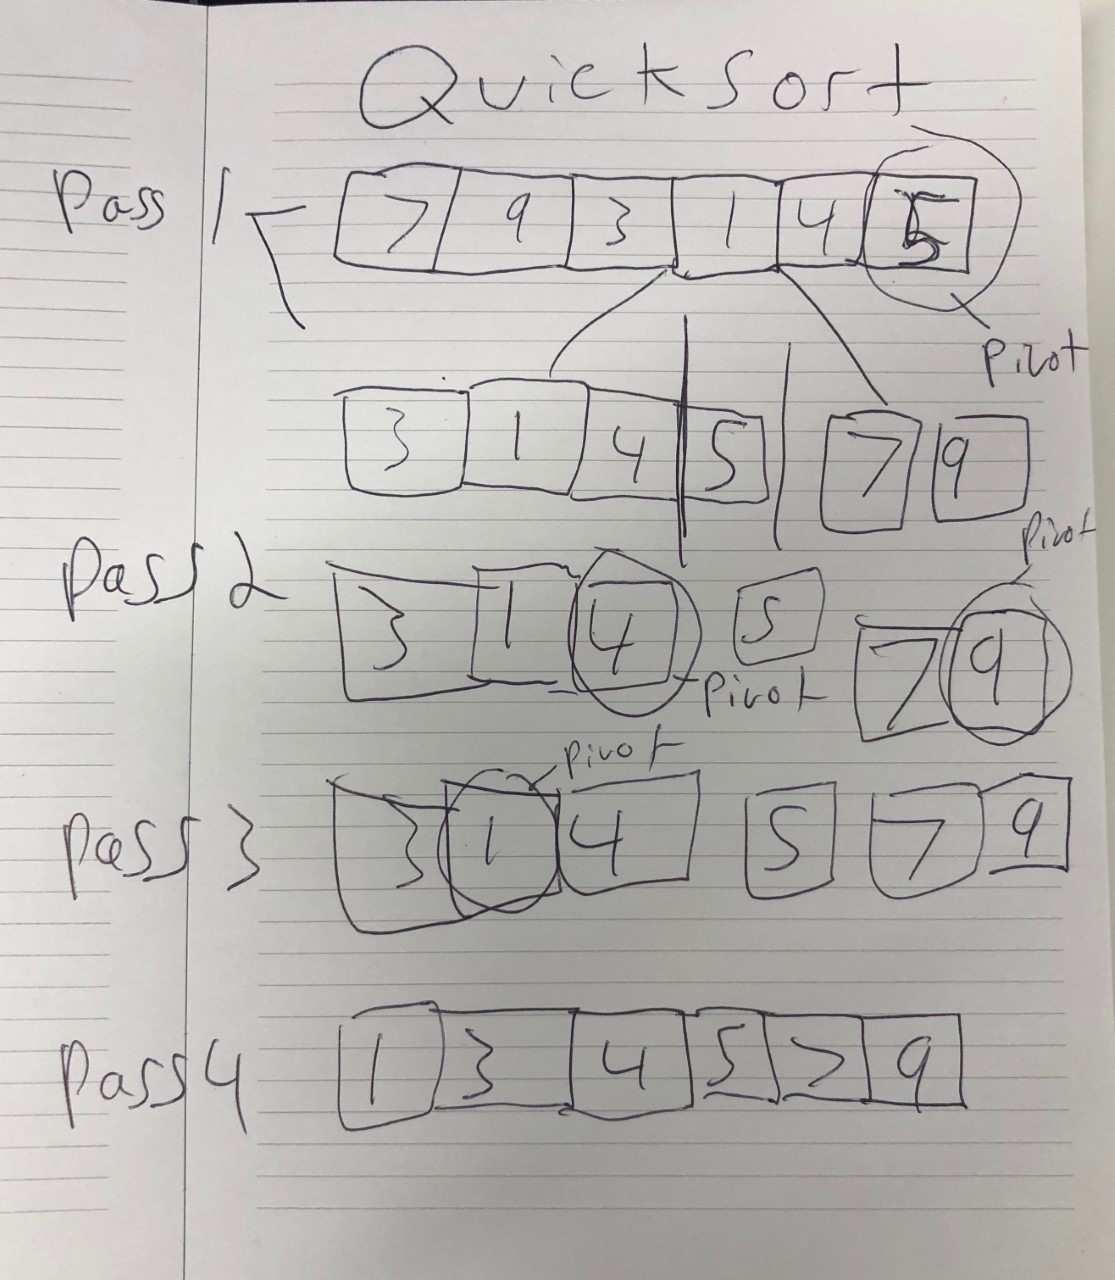 Quicksort
Pass 1 7 9 3 1 4 5
Pivot
3 1 4 5 7 9
Pivot
Pass 2 3 1 4 5 7 9
Pivot
Pivot
Pass 3 3 1 4 5 7 9
Pass 4 1 3 4 5 7 9